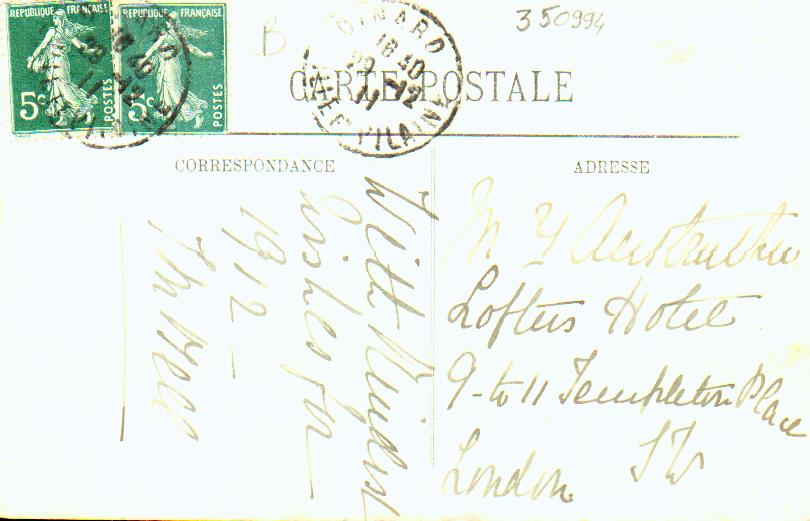 REPUBLIQUE FRANÇAISE
5c
POSTES
REPUBLIQUE FRANÇAISE
5c
POSTES
B
DINARD
18 40
29 -12
11
ILLE-ET-VILAINE
350994
CARTE POSTALE
CORRESPONDANCE
With Kindest
wishes for
1912 –
ADRESSE
Loftus Hotel
9-to 11 Templeton Place
London SW